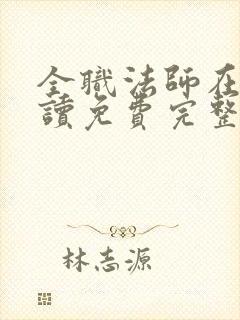 全職法師在
讀免費完整
林志源